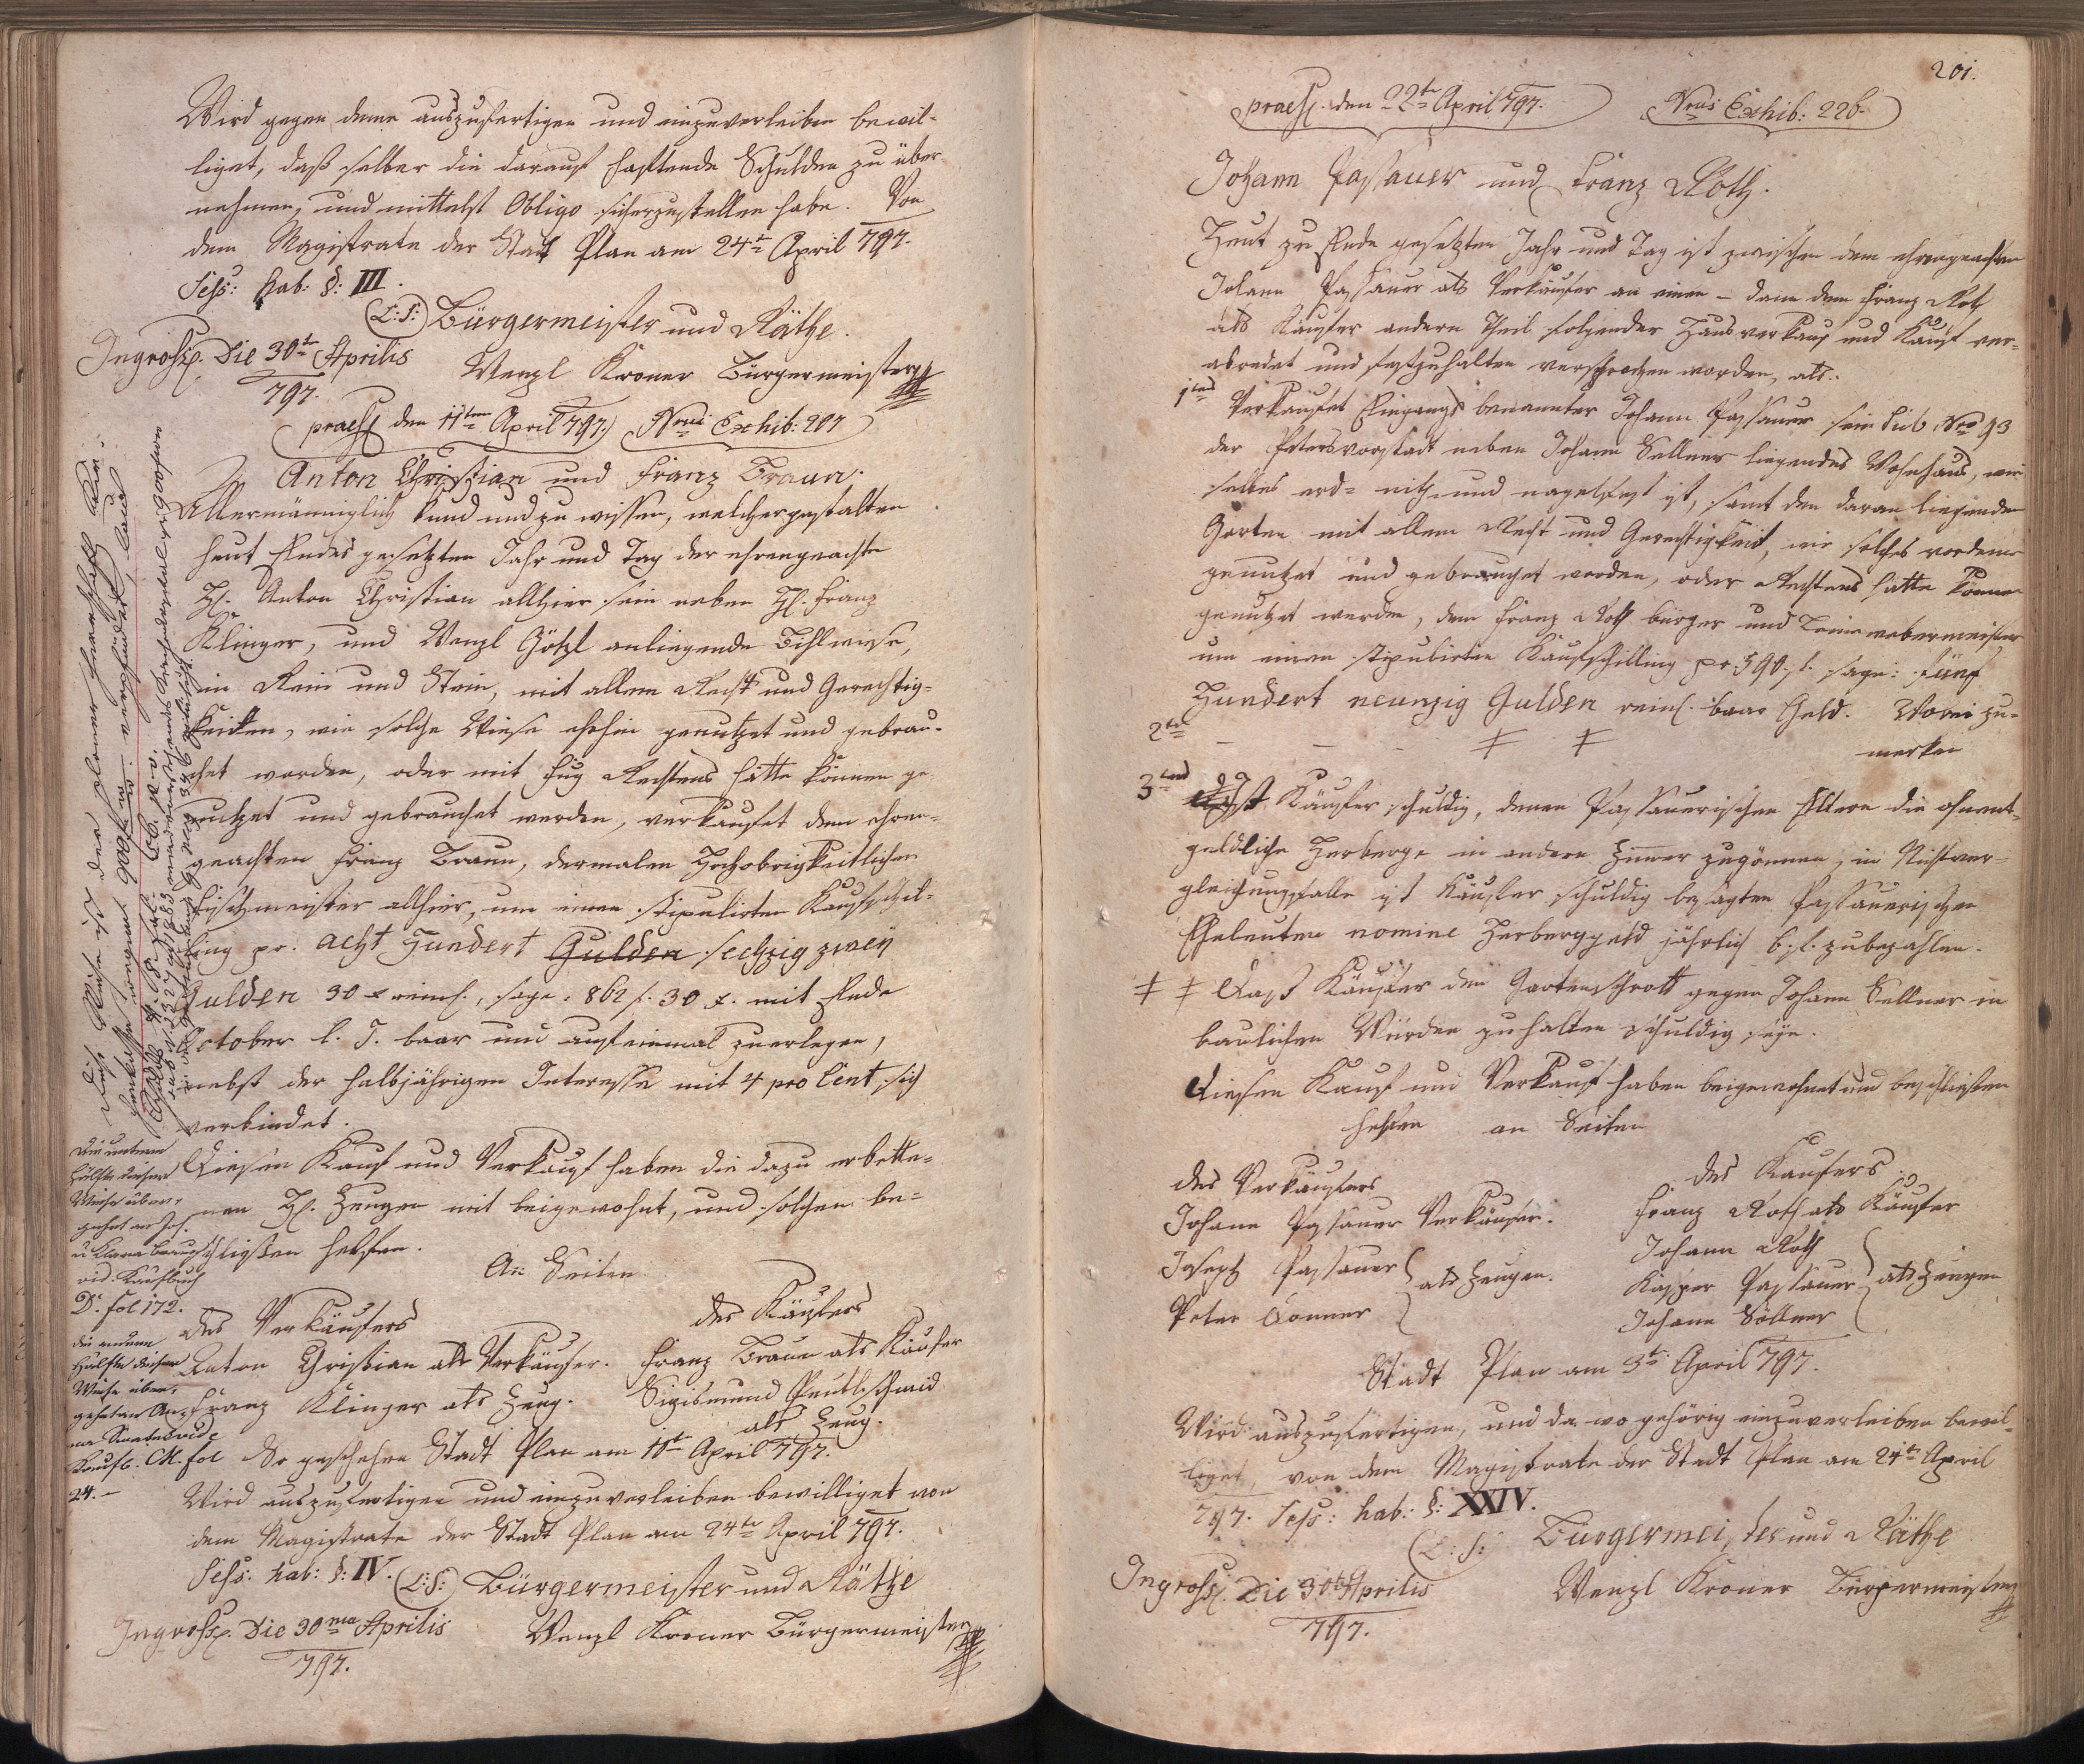 Wird gegen deme auszufertigen und einzuverleiben bewil-
liget, daß selber die darauf haftende Schulden zu über-
nehmen, und mittelst Obligo sicherzustellen habe. Von
dem Magistrate der Stadt Plan am 24t April 797.
Sess: hab: §: III.
(L:S:) Bürgermeister und Räthe.
Ingross. Die 30ta Aprilis
797.
Wenzl Kroner Bürgermeister
praes den 11ten April 797. Nrus Exhib: 207
Anton Christian und Franz Braun.
Allermänniglich kund und zu wissen, welchergestalten
heut Endes gesetzten Jahr und Tag der ehrengeachte
H. Anton Christian allhier sein neben H. Franz
Klinger, und Wenzl Götzl anliegende Bihlwiese,
in Rein und Stein, mit allem Recht und Gerechtig-
keiten, wie solche Wiese ehehin genutzet und gebrau-
chet worden, oder mit Fug Rechtens hätte können ge
nutzet und gebrauchet werden, verkaufet dem ehren-
geachten Franz Braun, dermalen Hochobrigkeitlichen
Fischmeister allhier, um einen stipulirten Kaufschil-
ling pr. acht Hundert Gulden sechzig zwey
Gulden 30 x reinh., sage: 862 f. 30 x. mit Ende
October l. J. baar und auf einmal zuerlegen,
nebst der halbjährigen Interesse mit 4 pro Cent, sich
verbindet.
Diesen Kauf und Verkauf haben die dazu erbette-
nen H. Zeugen mit beigewohnt, und solchen be-
schließen helfen.
An Seiten
des Verkäufers
des Käufers
Anton Christian als Verkäufer. Franz Braun als Käufer
Franz Klinger als Zeug. Sigismund Peutlschmid
als Zeug.
So geschehen Stadt Plan am 10ten April 797
Wird auszufertigen und einzuverleiben bewilliget von
dem Magistrate der Stadt Plan am 24te April 797.
Sess: hab: §: IV. (L:S:) Bürgermeister und Räthe
Ingross. Die 30ma Aprilis
797.
Wenzl Kroner Bürgermeister
Die untere
Hälfte dieser
Wiese über-
gehet an Joh.
u Klara Braun
vid. Kaufbuch
D. fol 172.
die andere
Hälfte dieser
Wiese über-
gehet an An-
Kaufb. M. fol
24.-
201.
praes. den 22te April 797. Nrus Exhib: 226.
Johann Passauer und Franz Roth.
Heut zu Ende gesetzten Jahr und Tag ist zwischen dem ehrengeachten
Johann Passauer als Verkäufer an einen - dann dem Franz Roth
als Käufer andern Theil folgender Hausverkauf und Kauf ver-
abredet und festzuhalten versprochen worden, als.
1tens Verkaufet Eingangs benannter Johann Passauer sein sub Nro 93
der Petersvorstadt neben Johann Sellner liegendes Wohnhaus, wie
selbes erd- nith- und nagelfest ist, samt den daran liegenden
Garten mit allem Recht und Gerechtigkeit, wie solches vordeme
genutzet und gebrauchet worden, oder Rechtens hätte können
genutzet werden, dem Franz Roth bürger und Leinwebermeister
um einen stipulirten Kaufschilling pr 590. f. sage: Fünf
Hundert neunzig Gulden reinh. baar Geld. Wovei zu-
merken
2tens - - - ‡ ‡
3tens Ist Käufer schuldig, denen Passauerischen Eltern die ohnent-
geldliche Herberge in andern Zimmer zugönnen, in Nichtver-
gleichungsfalle ist Käufer schuldig besagten Passauerischen
Eheleuten nomine Herberggeld jährlich 6. f. zubezahlen.
‡ ‡ Daß Käufer den Gartenschrott gegen Johann Sellner in
baulichen Würden zuhalten schuldig seye.
Diesen Kauf und Verkauf haben beigewohnt und beschließen
helfen an Seiten
des Verkäufers
des Käufers.
Johann Passauer Verkäufer.
Franz Roth als Käufer
Joseph Passauer
Peter Donner
als Zeugen.
Johann Roth
Kasper Passauer
Johann Söllner
als Zeugen
Stadt Plan am 3te April 797.
Wird auszufertigen, und da wo gehörig einzuverleiben bewil-
liget, von dem Magistrate der Stadt Plan am 24te April
797. Sess: hab: §: XXIV.
(L:S:) Bürgermeister und Räthe
Ingross. Die 30ta Aprilis
797.
Wenzl Kroner Bürgermeister